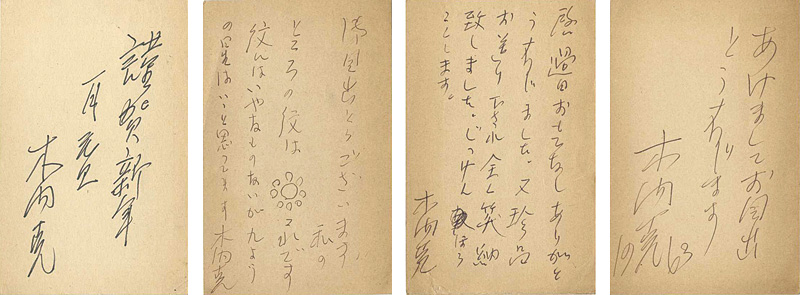 謹賀新年
一月元旦
木内克
御目出とうございます。私の
ところの紋は これです
紋んはいやなものないが九よう
の星はいゝと思ってます 木内克
啓 過日おもてなしありがと
うぞんじました。又珍品
お送り下され全く笑納
致しました。じっけん
ことします。
木内克
あけましてお目出
とうぞんじます
木内克
1963